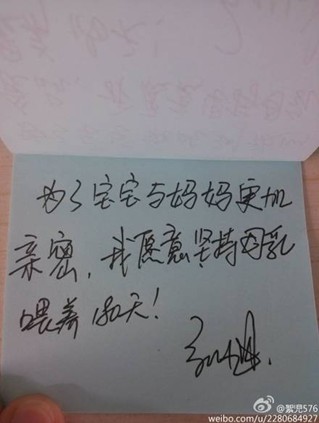 为了宝宝与妈妈更加
亲密，我愿意坚持母乳
喂养180天！
@絮児576
weibo.com/u/2280684927